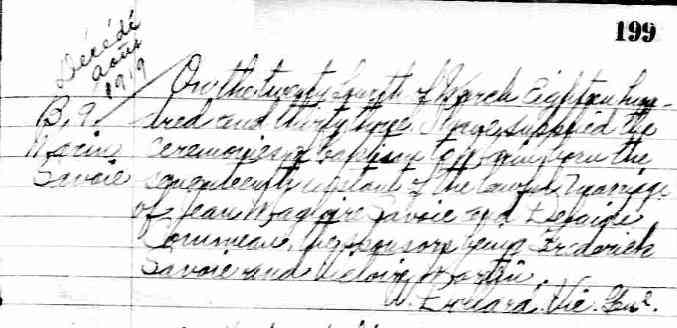 199
Décédé
août
1919
B, 9
Marin
Savoie
On the twenty fourth of March Eighteen hun-
dred and thirty three I have supplied the
ceremonies of baptism to Marin born the
seventeenth instant of the lawful marriage
of Jean Magloire Savoie and
Commeau, the sponsors being Frederick
Savoie and Victoire Martin.
Vic. Gen.